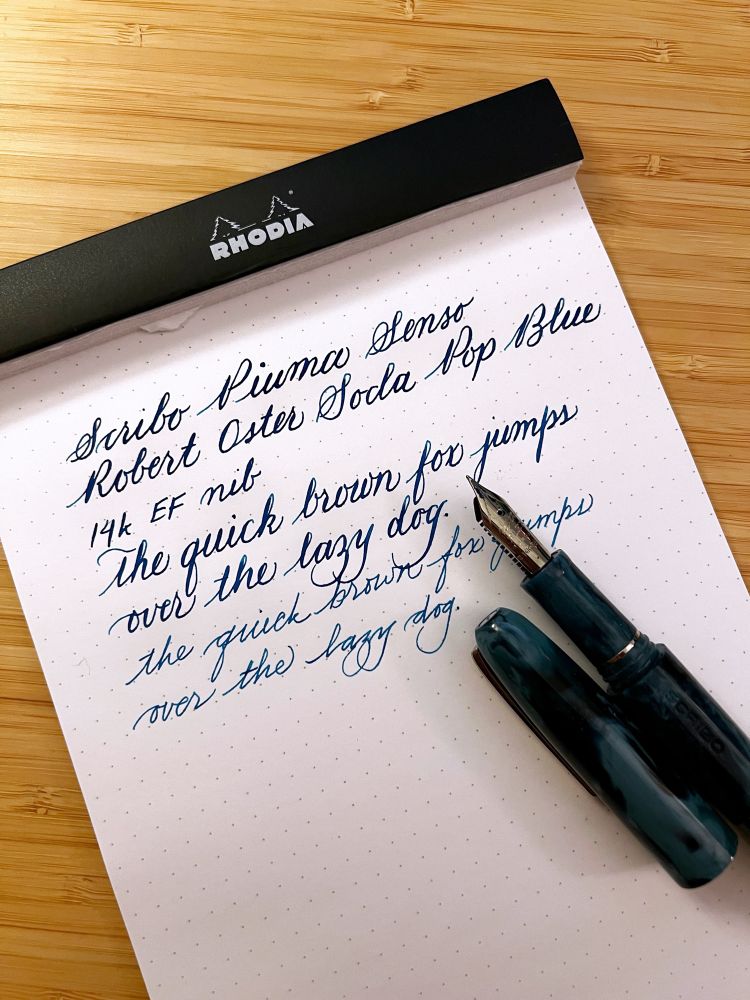 RHODIA
Scribo Piuma Senso
Robert Oster Soda Pop Blue
14k EF nib
The quick brown fox jumps
over the lazy dog.
the quick brown fox jumps
over the lazy dog.
SCRIBO